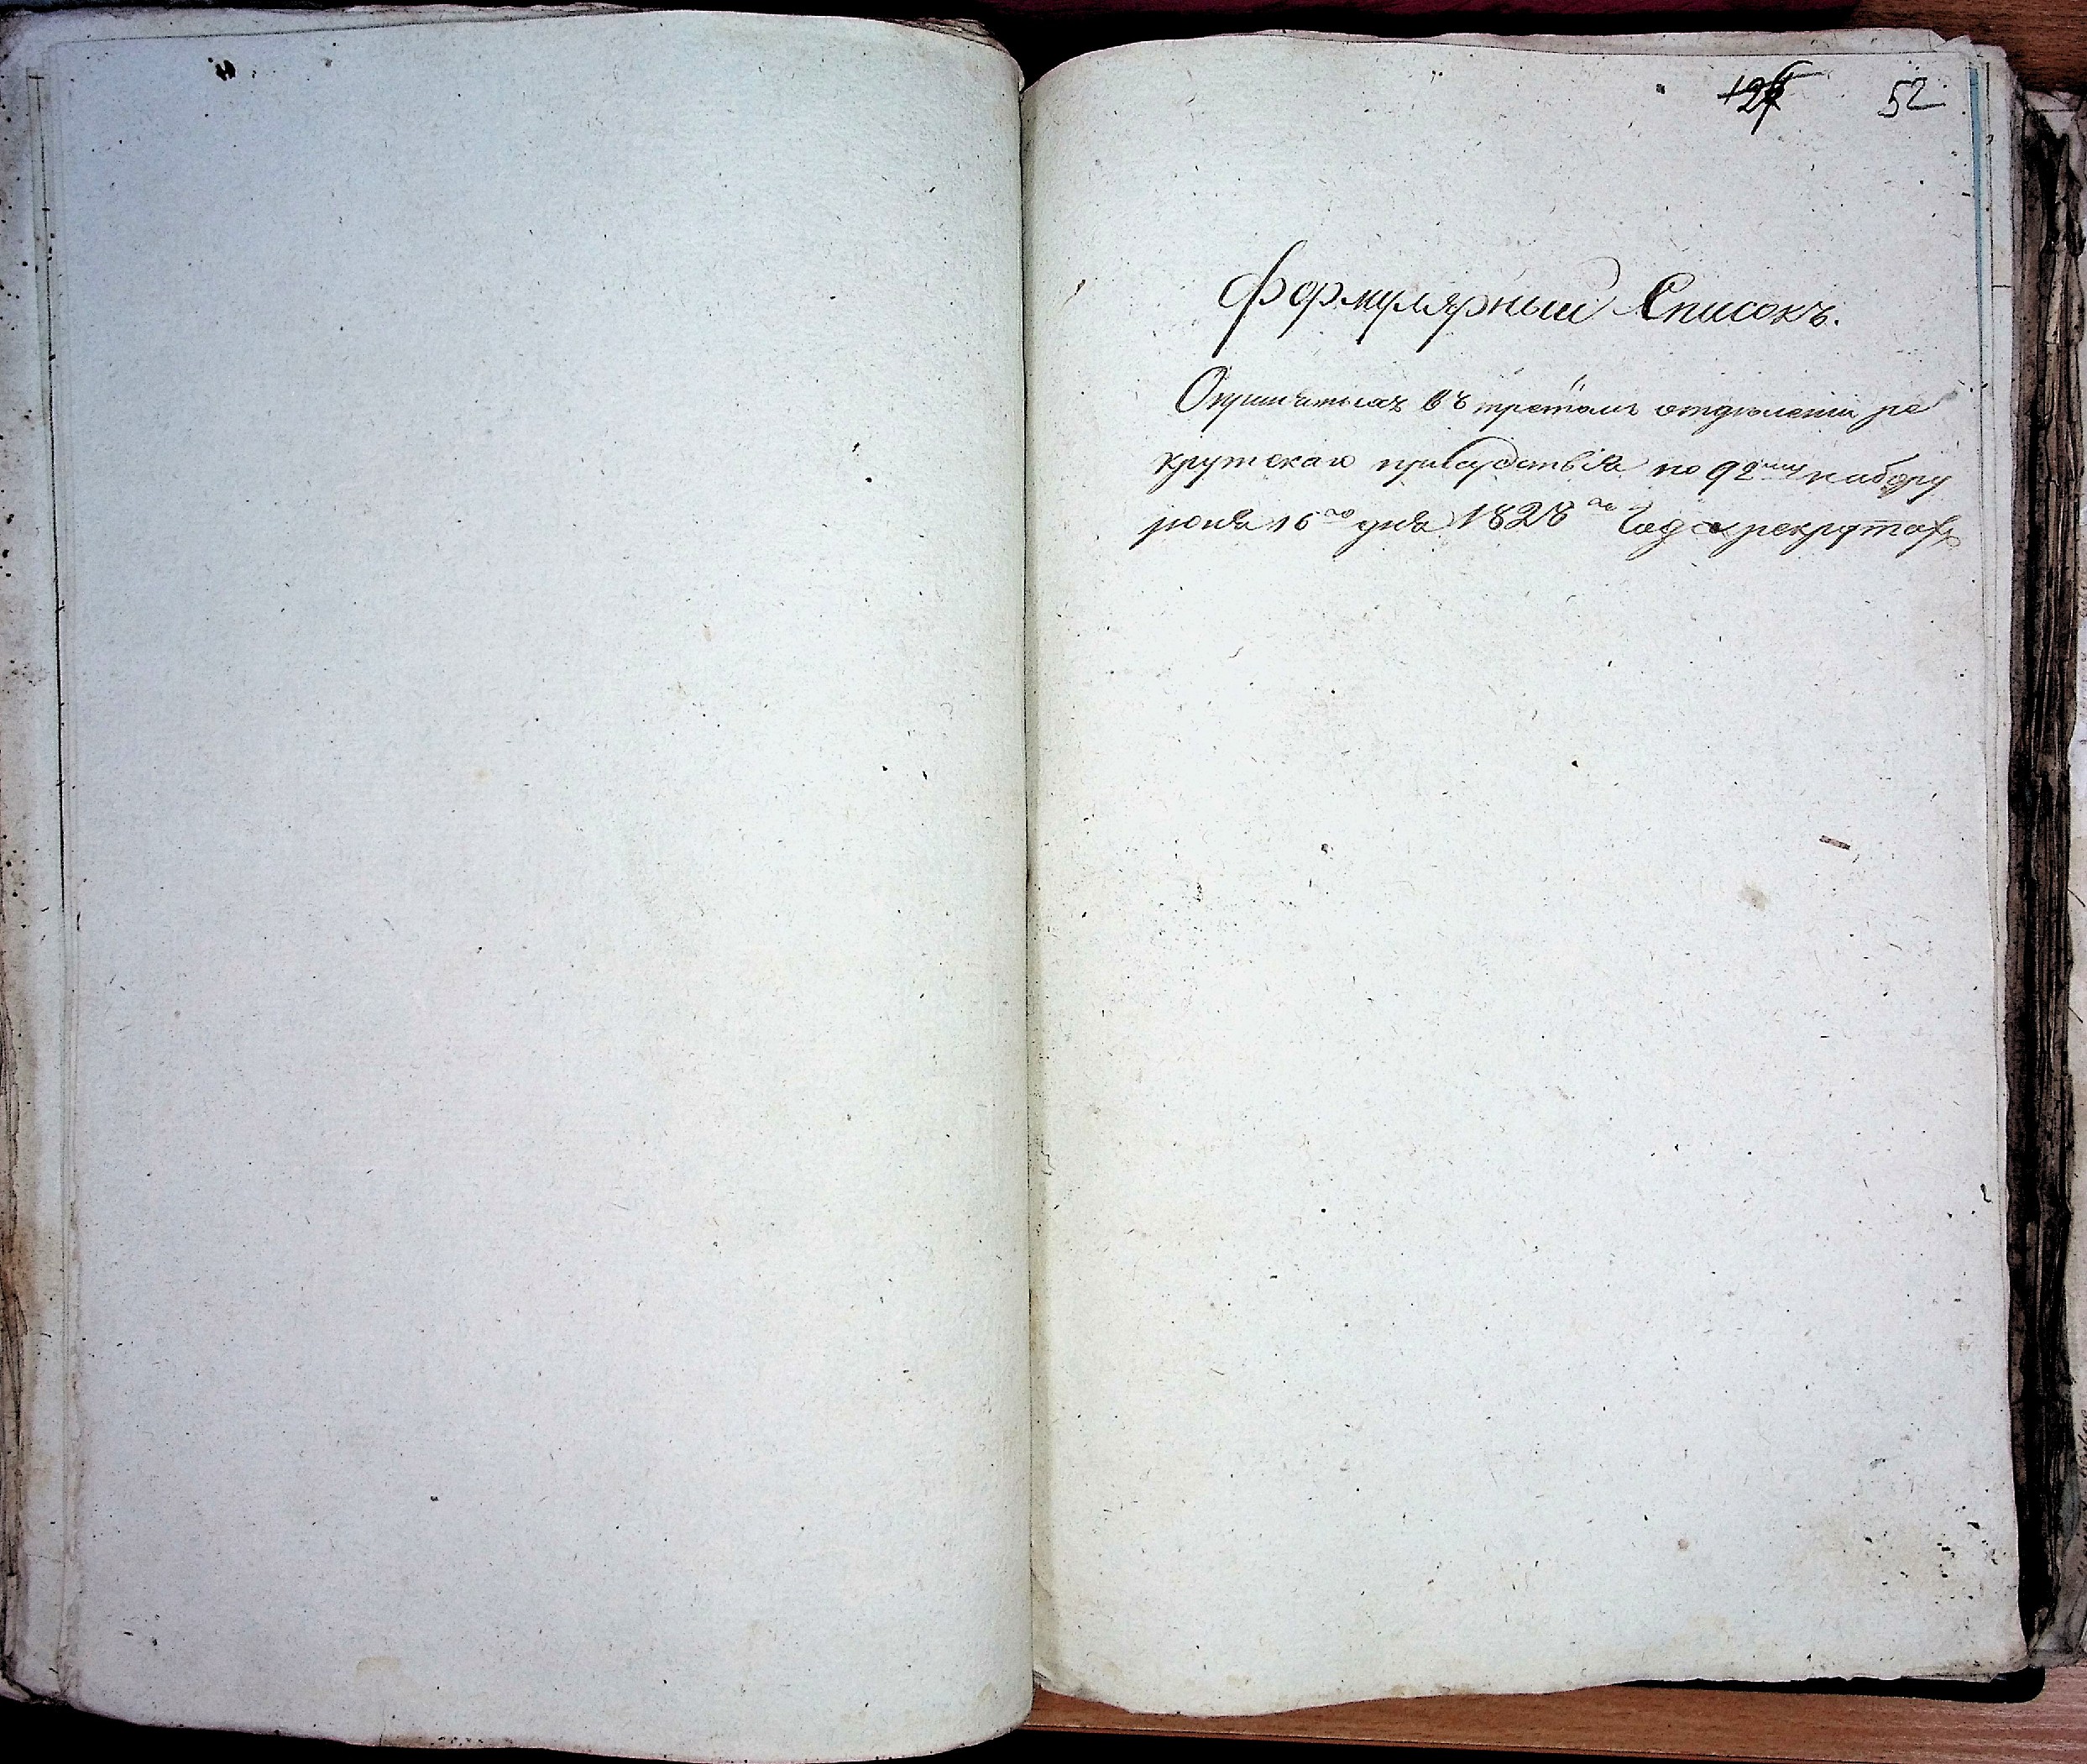 52
Формулярный Списокъ.
О принятыхъ въ третьемъ отделении ре
крутскаго присудствія по 92му набору
июня 16го дня 1828го Года рекрутахъ